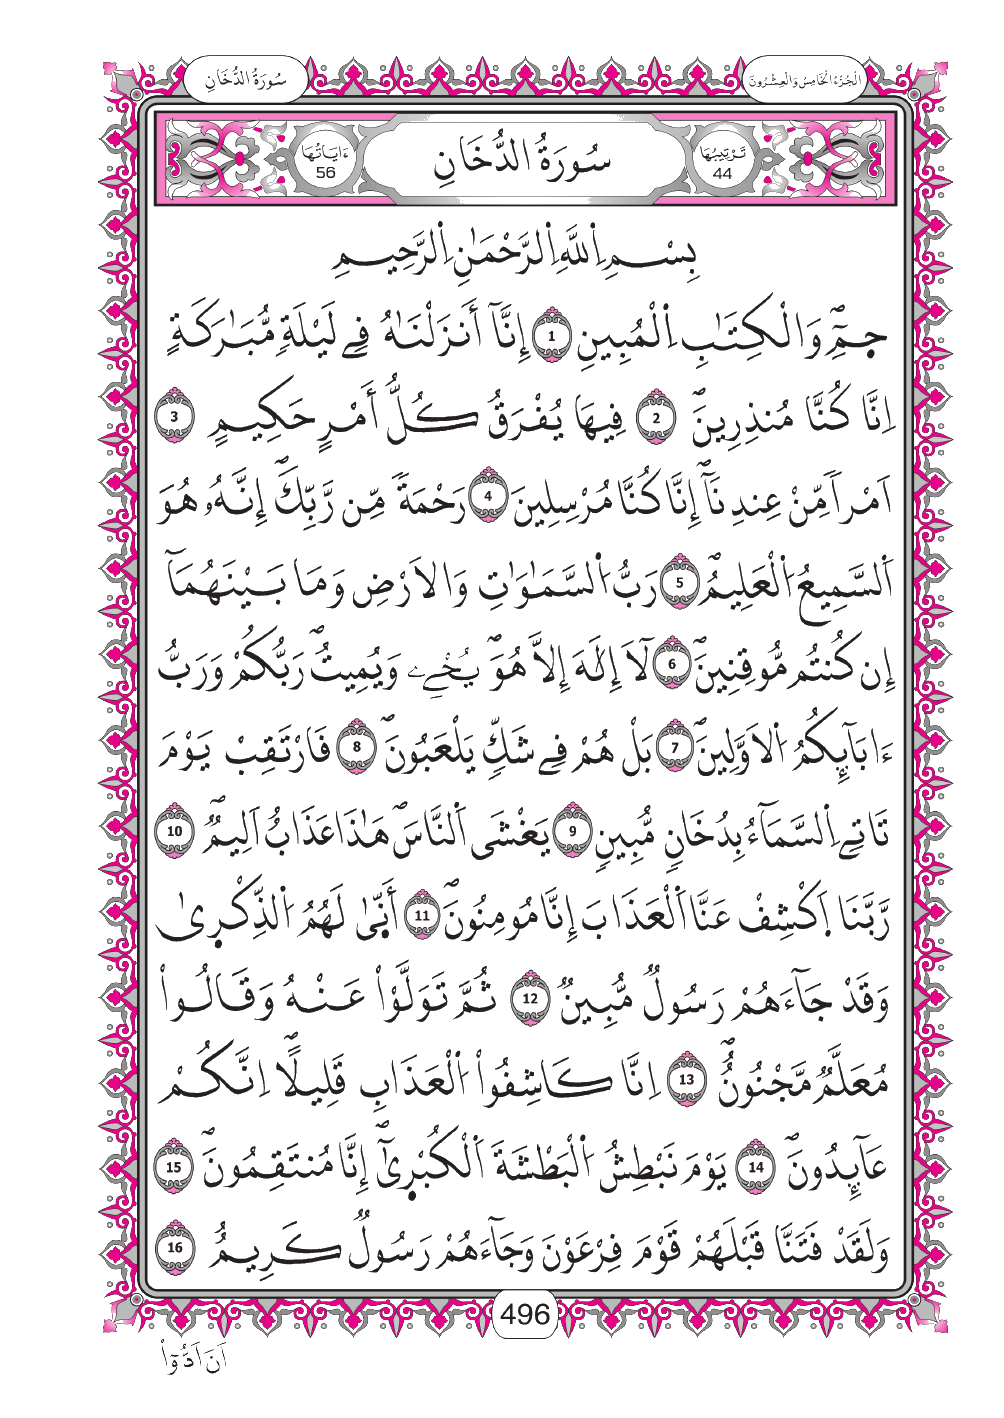 الجُزْءُ الخَامِسُ وَالعِشْرُونَ
سُورَةُ الدُّخَانِ
تَرْتِيبُهَا 44
سُورَةُ الدُّخَانِ
ءَايَاتُهَا 56
بِسْمِ اِ۬للَّهِ اِ۬لرَّحْمَٰنِ اِ۬لرَّحِيمِ
حٓمِٓۖ وَالْكِتَٰبِ اِ۬لْمُبِينِ 1 إِنَّآ أَنزَلْنَٰهُ فِے لَيْلَةٖ مُّبَٰرَكَةٍ
اِنَّا كُنَّا مُنذِرِينَۖ 2 فِيهَا يُفْرَقُ كُلُّ أَمْرٍ حَكِيمٍ 3
اَمْراٗ مِّنْ عِندِنَآۖ إِنَّا كُنَّا مُرْسِلِينَ 4 رَحْمَةٗ مِّن رَّبِّكَۖ إِنَّهُۥ هُوَ
اَ۬لسَّمِيعُ اُ۬لْعَلِيمُۖ 5 رَبُّ اُ۬لسَّمَٰوَٰتِ وَالَارْضِ وَمَا بَيْنَهُمَآ
إِن كُنتُم مُّوقِنِينَۖ 6 لَآ إِلَٰهَ إِلَّا هُوَۖ يُحْيِۦ وَيُمِيتُۖ رَبُّكُمْ وَرَبُّ
ءَابَآئِكُمُ اُ۬لَاوَّلِينَۖ 7 بَلْ هُمْ فِے شَكّٖ يَلْعَبُونَۖ 8 فَارْتَقِبْ يَوْمَ
تَاتِے اِ۬لسَّمَآءُ بِدُخَانٖ مُّبِينٖ 9 يَغْشَى اَ۬لنَّاسَۖ هَٰذَا عَذَابٌ اَلِيمٞۖ 10
رَّبَّنَا اَ۪كْشِفْ عَنَّا اَ۬لْعَذَابَ إِنَّا مُومِنُونَۖ 11 أَنّ۪يٰ لَهُمُ اُ۬لذِّكْر۪يٰ
وَقَدْ جَآءَهُمْ رَسُولٞ مُّبِينٞ 12 ثُمَّ تَوَلَّوْاْ عَنْهُ وَقَالُواْ
مُعَلَّمٞ مَّجْنُونٌۖ 13 اِنَّا كَاشِفُواْ اُ۬لْعَذَابِ قَلِيلاًۖ اِنَّكُمْ
عَآئِدُونَۖ 14 يَوْمَ نَبْطِشُ اُ۬لْبَطْشَةَ اَ۬لْكُبْر۪يٰٓۖ إِنَّا مُنتَقِمُونَۖ 15
وَلَقَدْ فَتَنَّا قَبْلَهُمْ قَوْمَ فِرْعَوْنَ وَجَآءَهُمْ رَسُولٞ كَرِيمٌ 16
496
اَنَ اَدُّوٓاْ